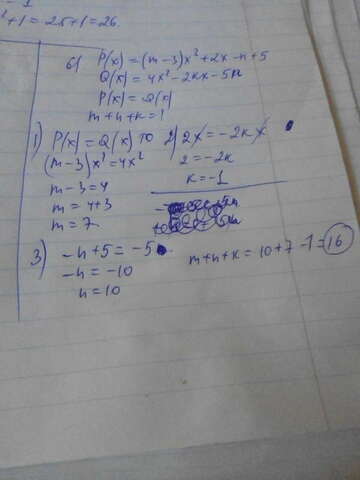 ²+1=25+1=26
б) P(x)=(m-3)x²+2x-n+5
Q(x)=4x²-2kx-5
P(x)=Q(x)
m+n+k=?
1) P(x)=Q(x) то
(m-3)x²=4x²
m-3=4
m=4+3
m=7
2) 2x=-2kx
2=-2k
k=-1
3) -n+5=-5
-n=-10
n=10
m+n+k=10+7-1=16